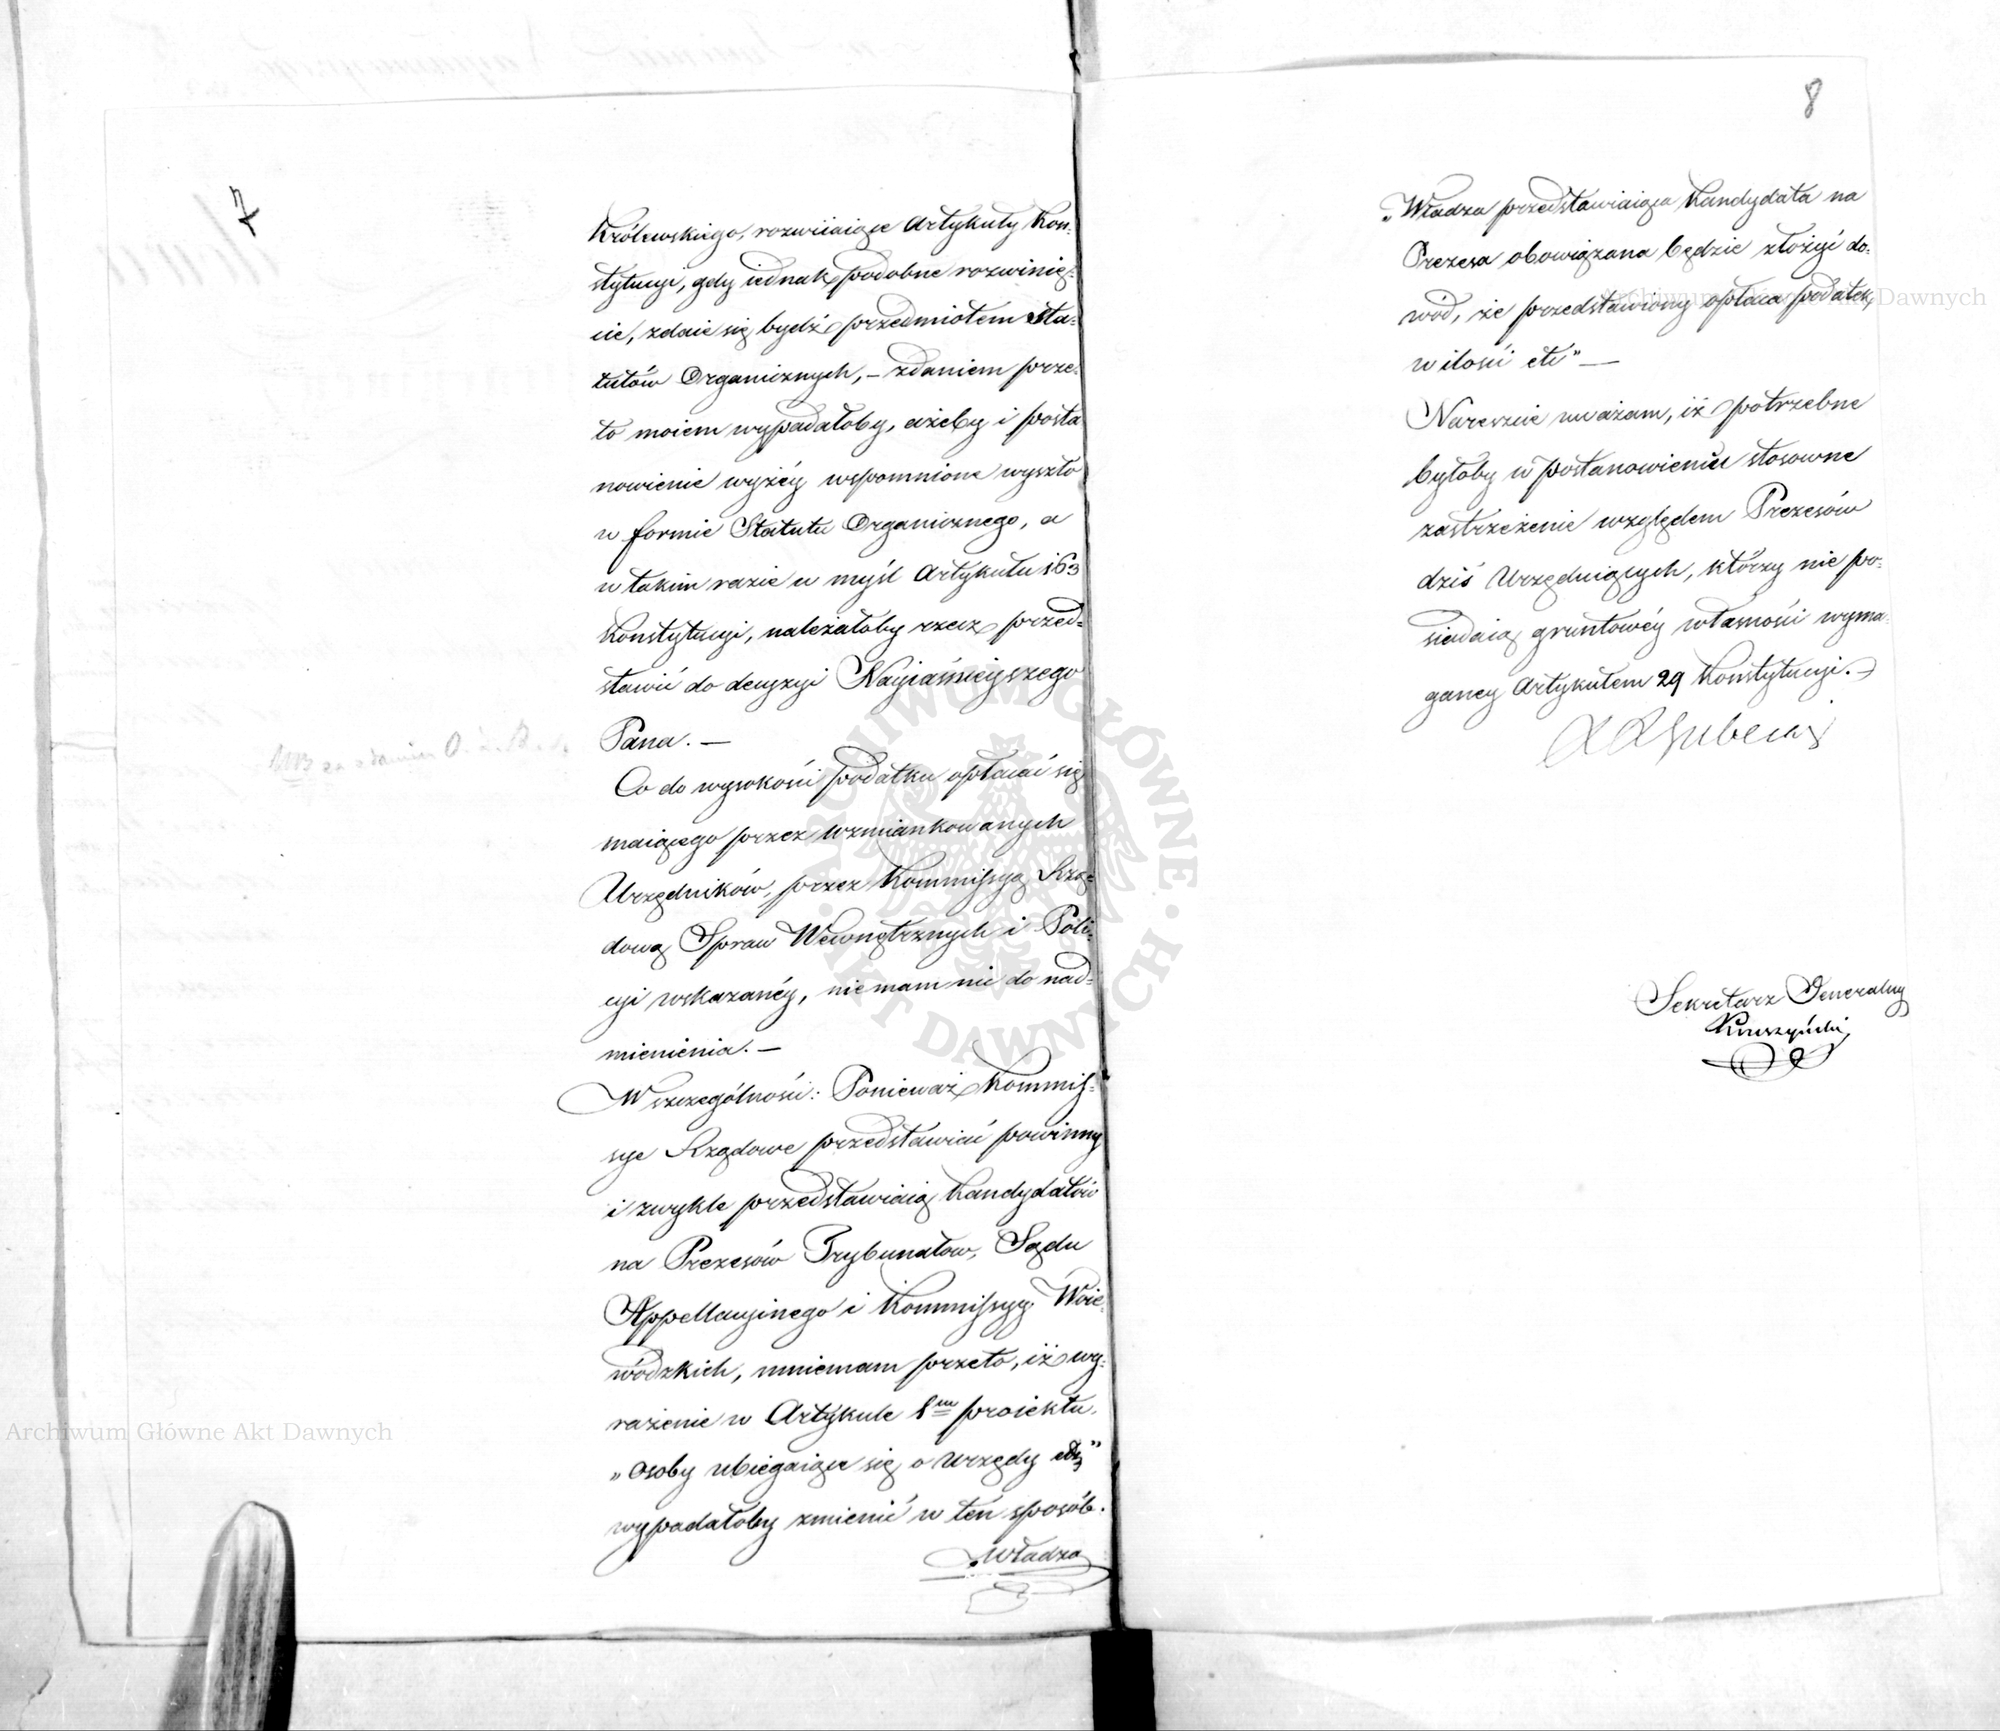 7
Królewskiego, rozwiiaiące Artykuły Kon-
stytucyi, gdy iednak podobne rozwinię-
cie, zdaie się bydź przedmiotem Sta-
tutów Organicznych, – zdaniem prze-
to moiem wypadałoby, ażeby i posta
nowienie wyżéy wspomnione wyszło
w formie Statutu Organicznego, a
w takim razie w myśl Artykułu 163
Konstytucyi, należałoby rzecz przed-
stawić do decyzyi Nayiaśnieyszego
Pana. —
Co do wysokości podatku opłacać się
maiącego przez wzmiankowanych
Urzędników, przez Kommissyą Rzą-
dową Spraw Wewnętrznych i Poli-
cyi wskazanéy, nie mam nic do nad-
mienienia. —
W szczególności: Ponieważ Kommis-
sye Rządowe przedstawiać powinny
i zwykle przedstawiaią Kandydatów
na Prezesów Trybunałow, Sądu
Appellacyinego i Kommissyy Woie-
wódzkich, mniemam przeto, iż wy-
rażenie w Artykule 8m proiektu,
„Osoby ubiegaiące się o urzędy etc”
wypadałoby zmienić w ten sposób.
„Władza
8
„Władza przedstawiaiąca Kandydata na
Prezesa obowiązana będzie złożyć do-
wód, że przedstawiony opłaca podatek,
w ilości etc” —
Nareszcie uważam, iż potrzebne
byłoby w postanowieniu stosowne
zastrzeżenie względem Prezesów
dziś Urzęduiących, którzy nie po-
siadaią gruntowéy własności wyma-
ganey Artykułem 29 Konstytucyi. —
X Lubecki
Sekretarz Generalny
Kruszyński
Archiwum Główne Akt Dawnych
Archiwum Główne Akt Dawnych
ARCHIWUM GŁÓWNE · AKT DAWNYCH ·